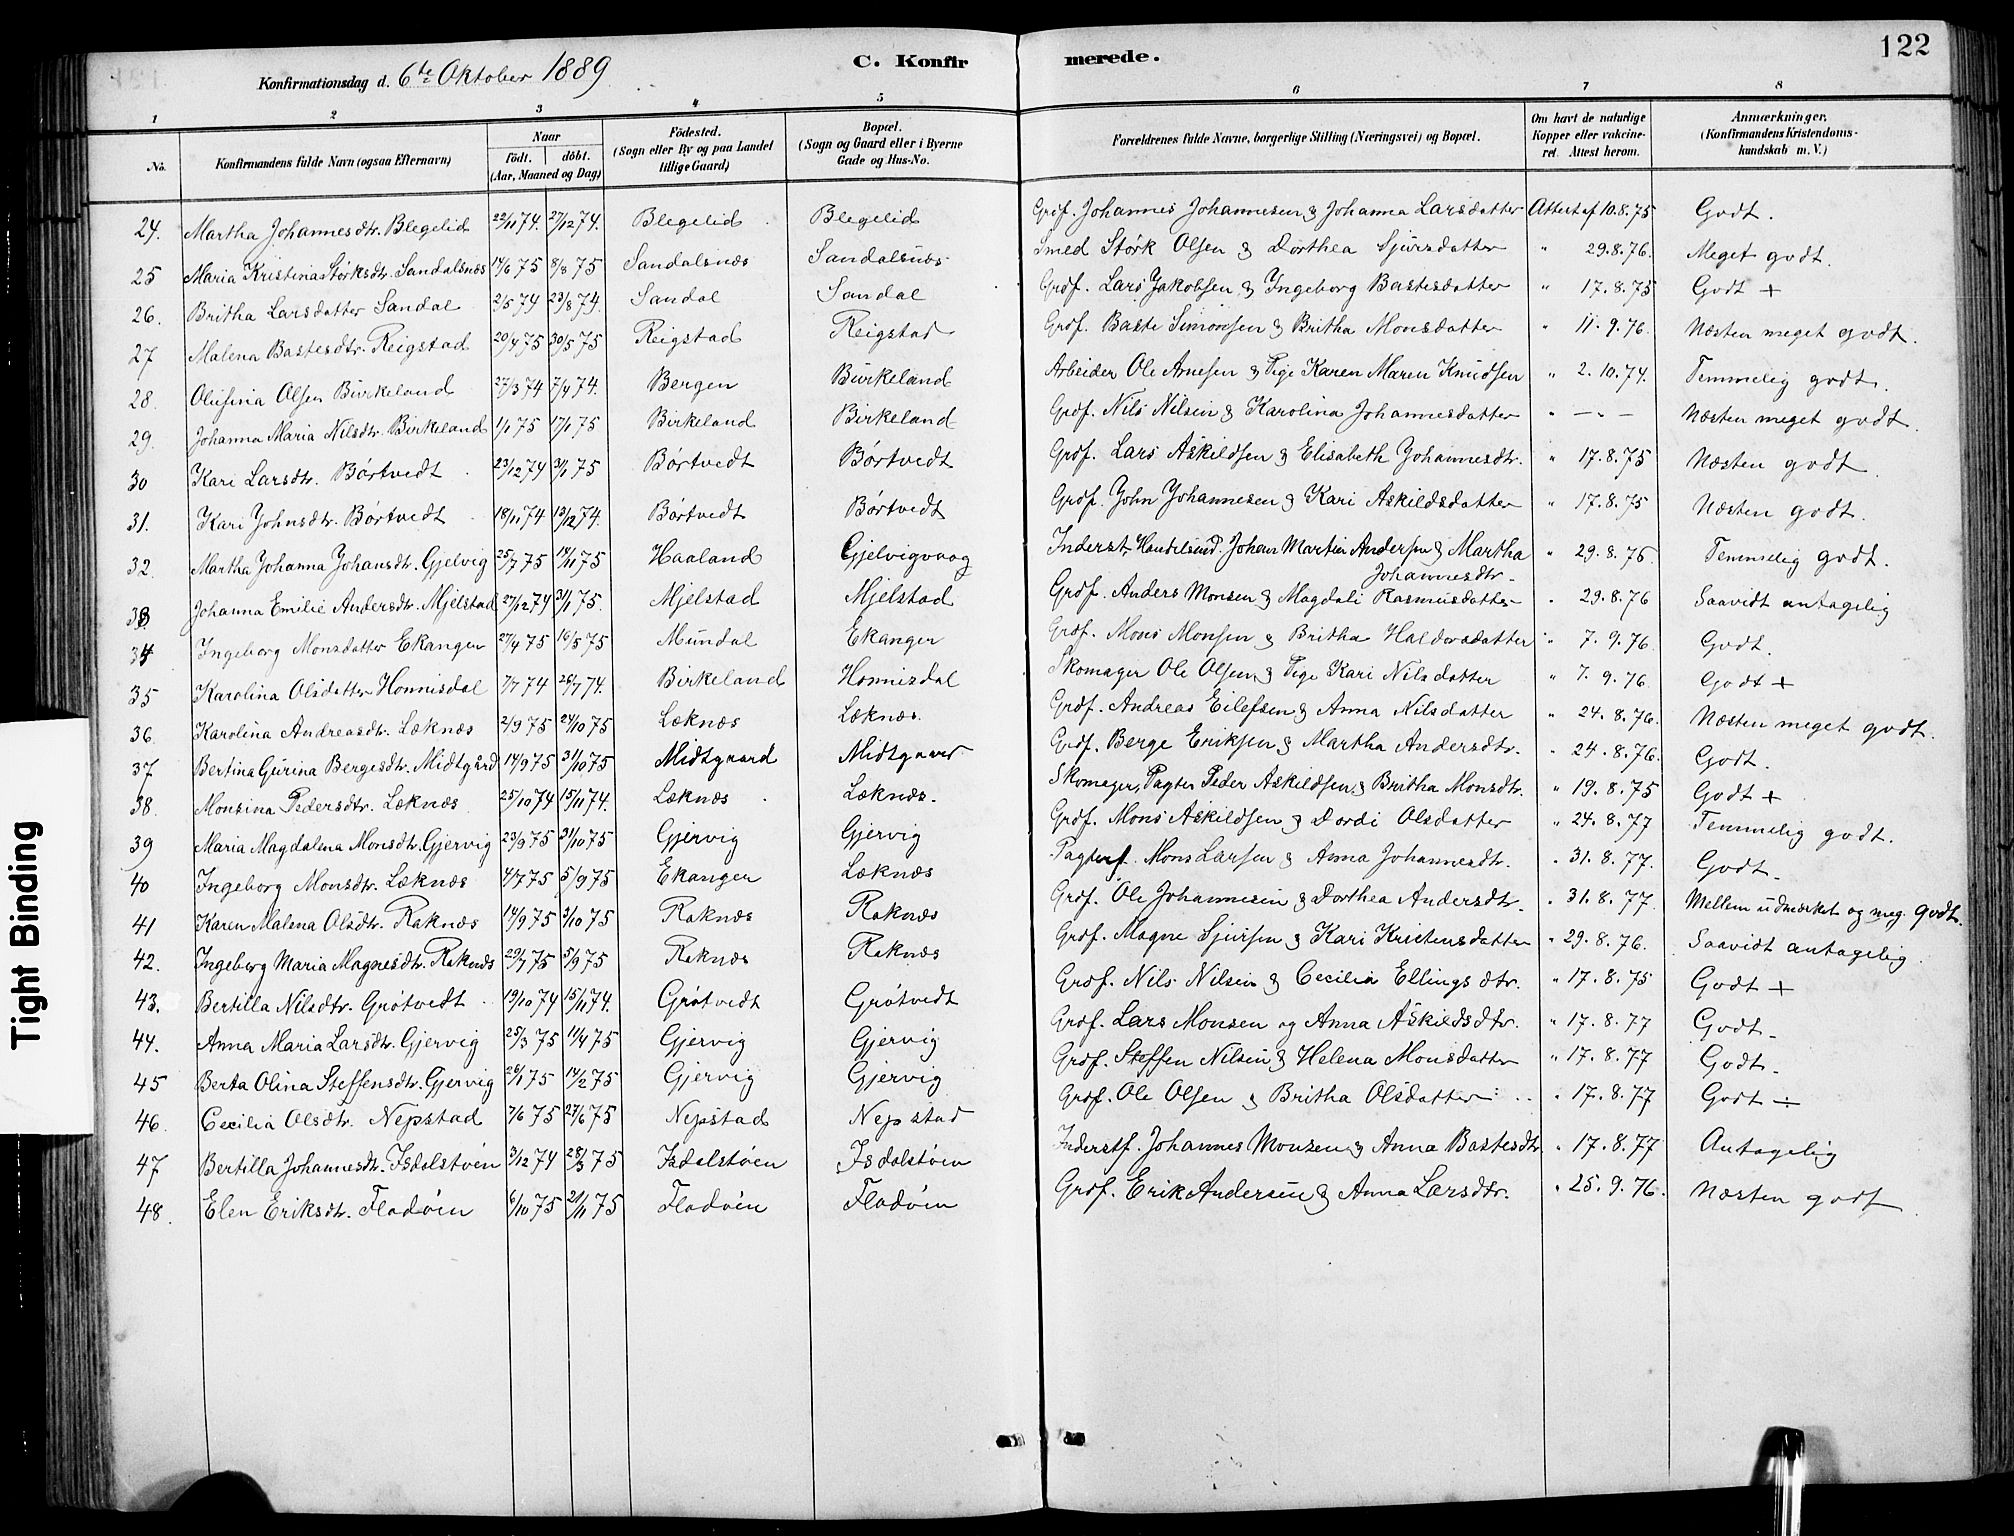 122
Konfirmationsdag d. 6te Oktober 1889
C. Konfirmerede.
1 2 3 4 5 6 7 8
No. Konfirmandens fulde Navn (ogsaa Efternavn) Naar födt. döbt. (Aar, Maaned og Dag) Födested. (Sogn eller By og paa Landet tillige Gaard) Bopæl. (Sogn og Gaard eller i Byerne Gade og Hus-No. Forældrenes fulde Navne, borgerlige Stilling (Næringsvei) og Bopæl. Om havt de naturlige Kopper eller vakcineret. Attest herom. Anmærkninger, (Konfirmandens Kristendomskundskab m. V.)
24. Martha Johannesdtr. Blegelid 22/11 74. 27/12 74. Blegelid Blegelid Grdf. Johannes Johannesen & Johanna Larsdatter Attest af 10.8.75 Godt.
25 Maria Kristina Størksdtr. Sandalsnæs 14/6 75 8/8 75 Sandalsnæs Sandalsnæs Smed Størk Olsen & Dorthea Sjursdatter " 29.8.76. Meget godt.
26. Britha Larsdatter Sandal 2/5 74 23/8 74. Sandal Sandal Grdf. Lars Jakobsen & Ingeborg Bastesdatter " 17.8.75 Godt +
27 Malena Bastesdtr. Reigstad 20/4 75 30/5 75 Reigstad Reigstad Grdf. Baste Simonsen & Britha Monsdatter " 11.9.76. Næsten meget godt.
28. Olufina Olsen Birkeland 27/3 74 7/4 74. Bergen Birkeland Arbeider Ole Arnesen & Pige Karen Maren Knudsen " 2.10.74. Temmelig godt.
29. Johanna Maria Nilsdtr. Birkeland 1/1 75 17/1 75 Birkeland Birkeland Grdf. Nils Nilsen & Karolina Johannesdatter " — " — Næsten meget godt.
30 Kari Larsdtr. Børtvedt 23/12 74 3/1 75 Børtvedt Børtvedt Grdf. Lars Askildsen & Elisabeth Johannesdtr. " 17.8.75 Næsten godt.
31. Kari Johnsdtr. Børtvedt 18/11 74 13/12 74. Børtvedt Børtvedt Grdf. John Johannesen & Kari Askildsdatter " 17.8.75 Næsten godt.
32. Martha Johanna Johansdtr. Gjelvig 25/7 75 14/11 75 Haaland Gjelvigvaag Inderst, Handelsmd. Johan Martin Andersen & Martha Johannesdtr. " 29.8.76. Temmelig godt.
33 Johanna Emilie Andersdtr. Mjelstad 27/12 74 31/1 75. Mjelstad Mjelstad Grdf. Anders Monsen & Magdali Rasmusdatter " 29.8.76 Saavidt antagelig
34 Ingeborg Monsdatter Ekanger 27/4 75 16/5 75 Mundal Ekanger Grdf. Mons Monsen & Britha Haldorsdatter " 7.9.76. Godt.
35 Karolina Olsdatter Honnisdal 7/7 74 26/7 74. Birkeland Honnisdal Skomager Ole Olsen & Pige Kari Nilsdatter " 7.9.76 Godt +
36. Karolina Andreasdtr. Læknæs 2/9 75 24/10 75 Læknæs Læknæs. Grdf. Andreas Eilefsen & Anna Nilsdatter " 24.8.76. Næsten meget godt.
37 Bertina Gurina Bergesdtr. Midtgård 14/9 75 31/10 75 Midtgaard Midtgaard Grdf. Berge Eriksen & Martha Andersdtr. " 24.8.76. Godt.
38. Monsina Pedersdtr. Læknæs 25/10 74 15/11 74. Læknæs Læknæs. Skomager, Pagter Peder Askildsen & Britha Monsdtr. " 19.8.75 Godt +
39 Maria Magdalena Monsdtr. Gjervig 23/9 75 31/10 75 Gjervig Gjervig Grdf. Mons Askildsen & Dordi Olsdatter " 24.8.77 Temmelig godt.
40 Ingeborg Monsdtr. Læknæs 4/7 75 5/9 75 Ekanger Læknæs Pagterf. Mons Larsen & Anna Johannesdtr. " 31.8.77. Godt.
41 Karen Malena Olsdtr. Raknæs 14/9 75 3/10 75 Raknæs Raknæs Grdf. Ole Johannesen & Dorthea Andersdtr. " 31.8.77. Mellem udmærket og meg. godt.
42. Ingeborg Maria Magnesdtr. Raknæs 29/7 75 5/9 75 Raknæs Raknæs Grdf. Magne Sjursen & Kari Kristensdatter " 29.8.76. Saavidt antagelig.
43. Bertilla Nilsdtr. Grøtvedt 19/10 74 15/11 74. Grøtvedt Grøtvedt Grdf. Nils Nilsen & Cecilia Ellingsdtr. " 17.8.75 Godt +
44. Anna Maria Larsdtr. Gjervig 25/3 75 11/4 75 Gjervig Gjervig Grdf. Lars Monsen og Anna Askildsdtr. " 17.8.77 Godt.
45 Berta Olina Steffensdtr. Gjervig 26/1 75 14/2 75 Gjervig Gjervig Grdf. Steffen Nilsen & Helena Monsdatter " 17.8.77 Godt.
46. Cecilia Olsdtr. Nepstad 7/6 75 27/6 75 Nepstad Nepstad Grdf. Ole Olsen & Britha Olsdatter " 17.8.77 Godt ÷
47 Bertilla Johannesdtr. Isdalstøen 3/12 74 28/3 75 Isdalstøen Isdalstøen Inderstf. Johannes Monsen & Anna Bastesdtr " 17.8.77 Antagelig
48. Elen Eriksdtr. Fladøien 6/10 75 21/11 75 Fladøien Fladøien Grdf. Erik Andersen & Anna Larsdtr. " 25.9.76. Næsten godt
Tight Binding